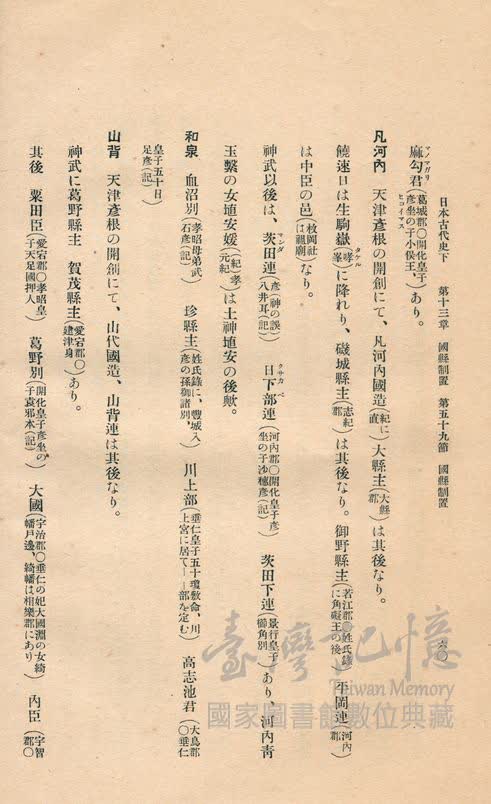 日本古代史下　第十三章　國縣制置　第五十九節　國縣制置
六〇
麻勾君（葛城郡〇開化皇子彥坐の子小俣王、）あり。
マノマガリ
ヒコイマス
凡河內　天津彥根の開創にて、凡河內國造（紀に直）大縣主（大縣郡）は其後なり。
饒速日は生駒嶽（哮峯）に降れり、磯城縣主（志紀郡）は其後なり。御野縣主（若江郡〇姓氏錄に角礙王の後）平岡連（河內郡）
タケル
は中臣の邑（枚岡社は祖廟）なり。
神武以後は、茨田連（彥八井耳（記））日下部連（河內郡〇開化皇子彥坐の子沙穗彥（記））茨田下連（景行皇子櫛角別）あり、河內靑
マンダ
クサカベ
玉繫の女埴安媛（紀）（孝元紀）は土神埴安の後歟。
和泉　血沼別（孝昭母弟武石彥（記））珍縣主（姓氏錄に、豐城入彥の孫御諸別、）川上部（垂仁皇子五十瓊敷命、川上宮に居て——部を定む）高志池君（大鳥郡〇垂仁
皇子五十日足彥（記））
山背　天津彥根の開創にて、山代國造、山背連は其後なり。
神武に葛野縣主　賀茂縣主（愛宕郡〇建津身）あり。
其後　粟田臣（愛宕郡〇孝昭皇子天足國押人）葛野別（開化皇子彥坐の子袁邪本（記））大國（宇治郡〇垂仁の妃大國淵の女綺幡戸邊、綺幡は相樂郡にあり）內臣（宇智郡〇
臺灣記憶
Taiwan Memory
國家圖書館數位典藏